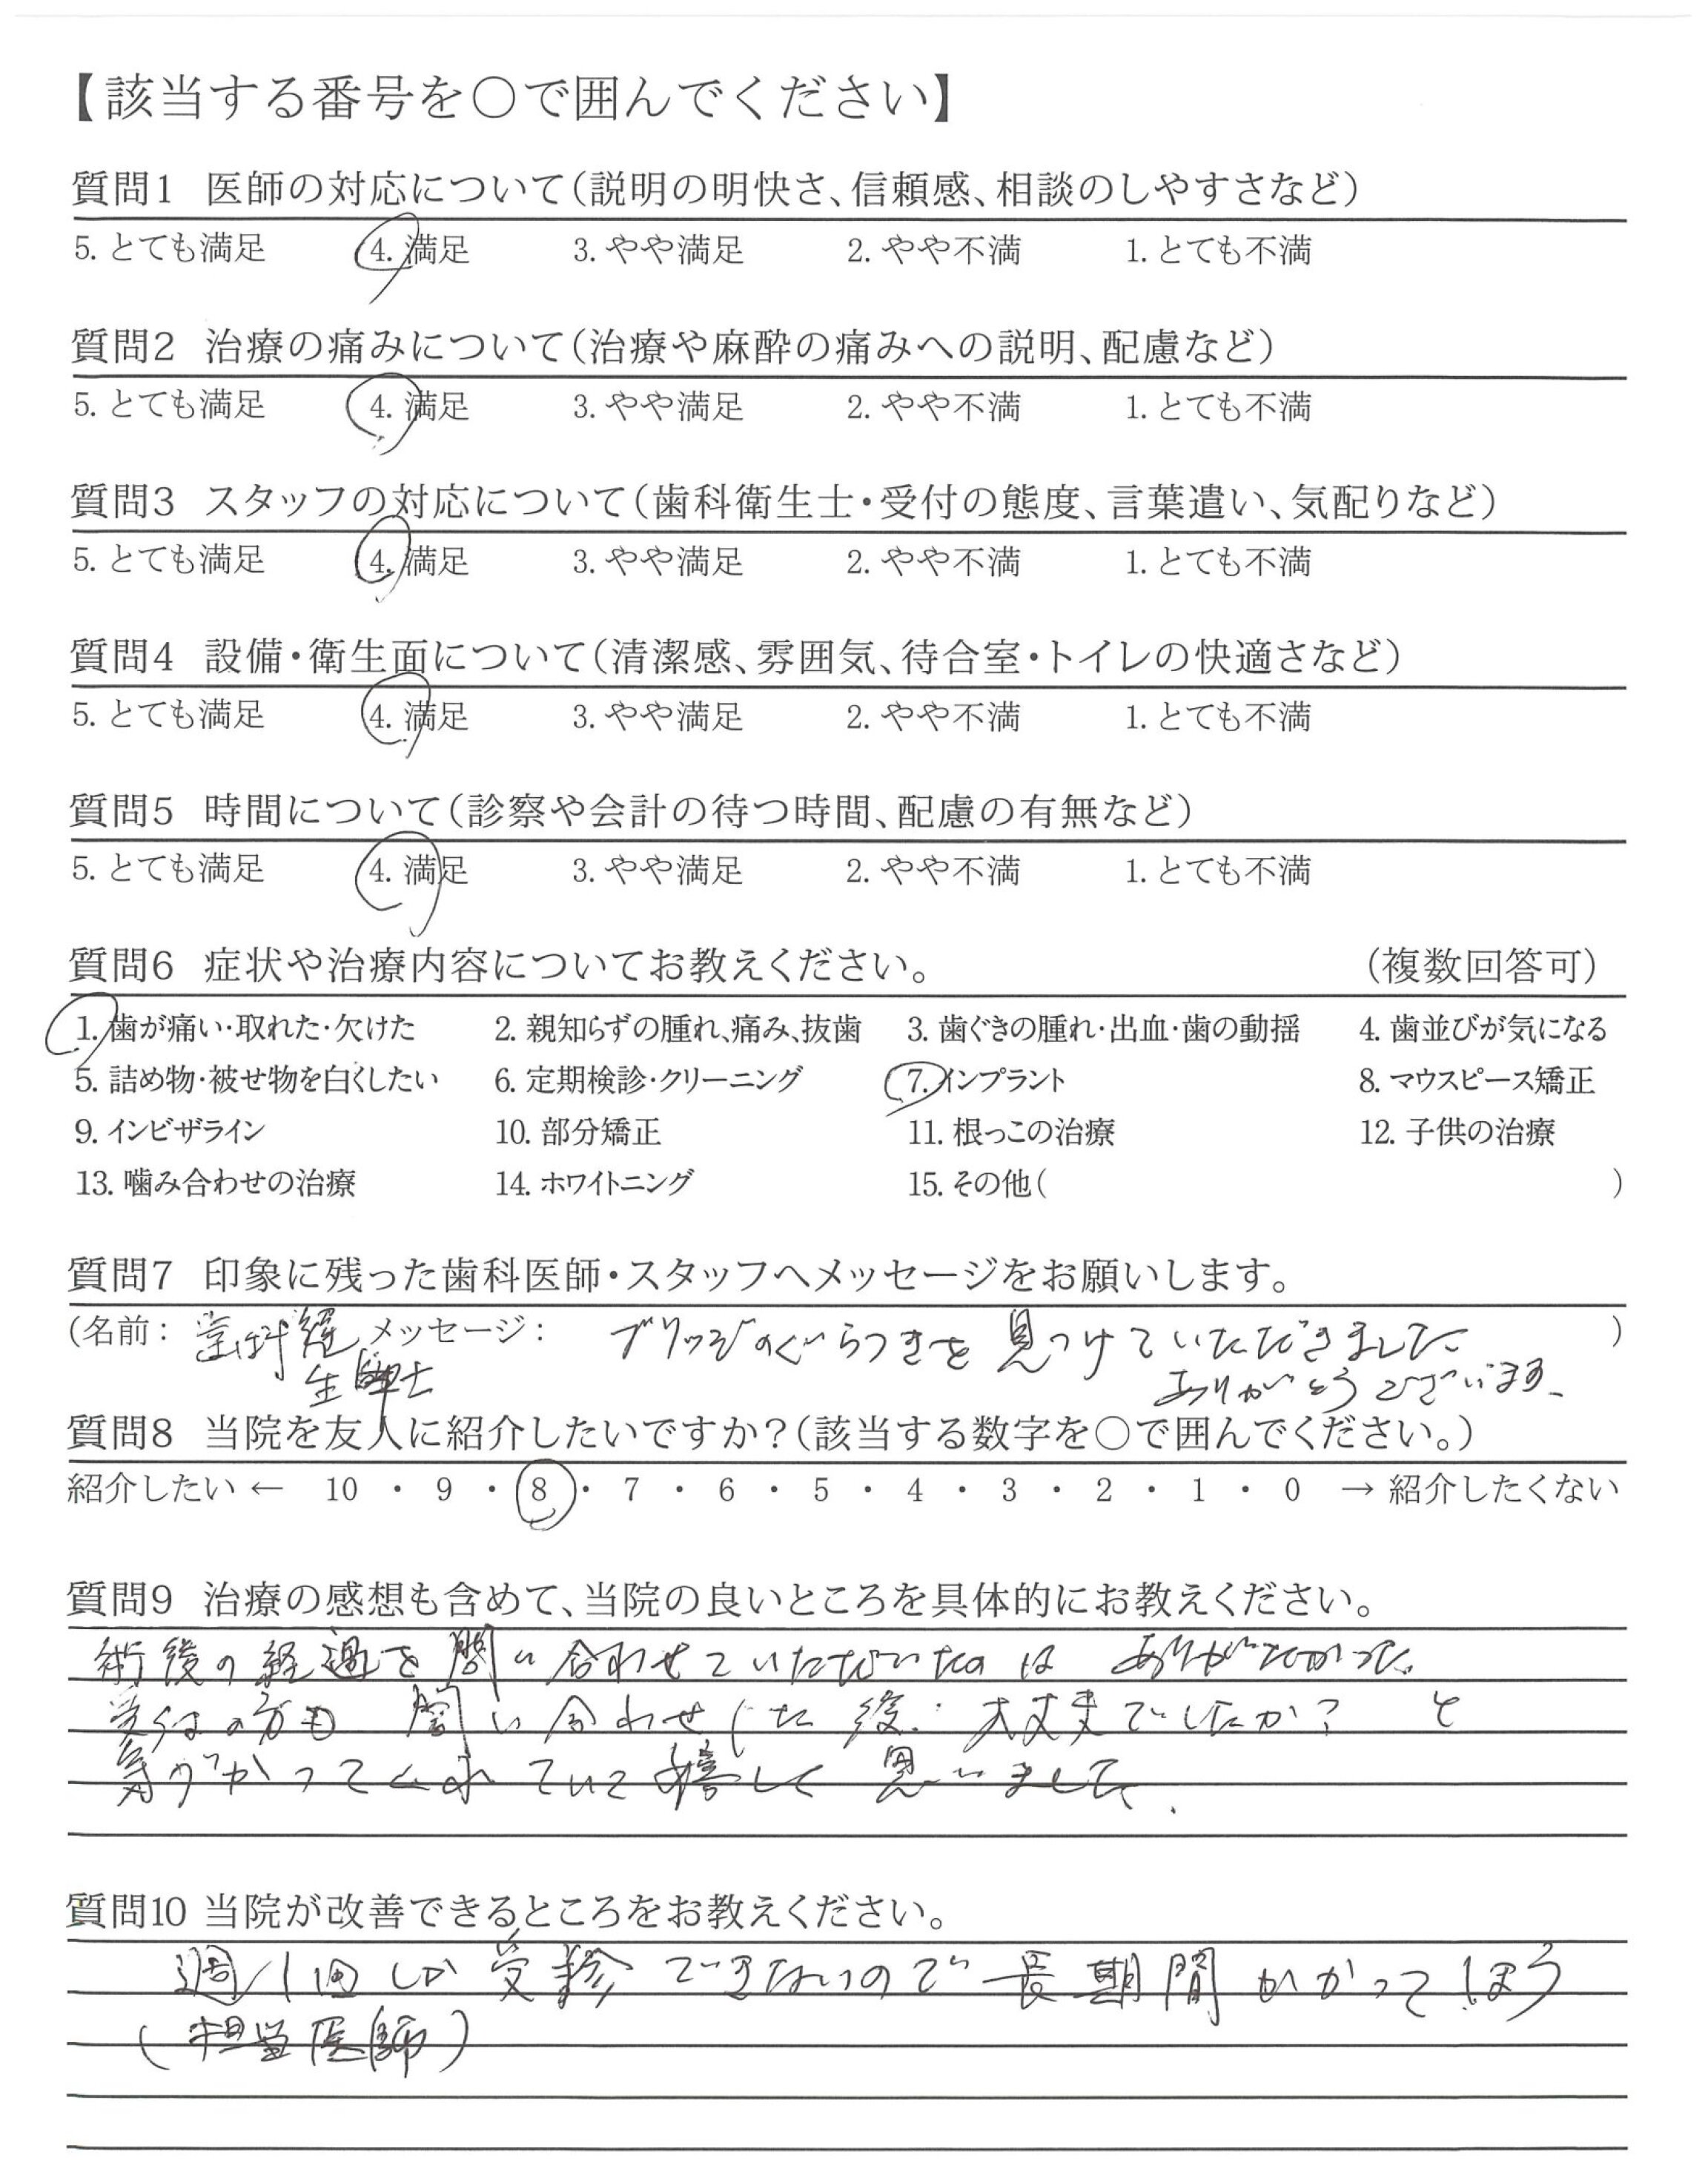 【該当する番号を○で囲んでください】
質問1 医師の対応について(説明の明快さ、信頼感、相談のしやすさなど)
5. とても満足 4. 満足 3. やや満足 2. やや不満 1. とても不満
質問2 治療の痛みについて(治療や麻酔の痛みへの説明、配慮など)
5. とても満足 4. 満足 3. やや満足 2. やや不満 1. とても不満
質問3 スタッフの対応について(歯科衛生士・受付の態度、言葉遣い、気配りなど)
5. とても満足 4. 満足 3. やや満足 2. やや不満 1. とても不満
質問4 設備・衛生面について(清潔感、雰囲気、待合室・トイレの快適さなど)
5. とても満足 4. 満足 3. やや満足 2. やや不満 1. とても不満
質問5 時間について(診察や会計の待つ時間、配慮の有無など)
5. とても満足 4. 満足 3. やや満足 2. やや不満 1. とても不満
質問6 症状や治療内容についてお教えください。 (複数回答可)
1. 歯が痛い・取れた・欠けた 2. 親知らずの腫れ、痛み、抜歯 3. 歯ぐきの腫れ・出血・歯の動揺 4. 歯並びが気になる
5. 詰め物・被せ物を白くしたい 6. 定期検診・クリーニング 7. インプラント 8. マウスピース矯正
9. インビザライン 10. 部分矯正 11. 根っこの治療 12. 子供の治療
13. 噛み合わせの治療 14. ホワイトニング 15. その他( )
質問7 印象に残った歯科医師・スタッフへメッセージをお願いします。
(名前: メッセージ: ブリッジのぐらつきを見つけていただきました )
ありがとうございます。
質問8 当院を友人に紹介したいですか?(該当する数字を○で囲んでください。)
紹介したい ← 10 ・ 9 ・ 8 ・ 7 ・ 6 ・ 5 ・ 4 ・ 3 ・ 2 ・ 1 ・ 0 → 紹介したくない
質問9 治療の感想も含めて、当院の良いところを具体的にお教えください。
術後の経過を問い合わせていただいたのは ありがたかった。
受付の方も 問い合わせした後 大丈夫でしたか? と
気づかってくれていて嬉しく思いました。
質問10 当院が改善できるところをお教えください。
週/1回しか受診できないので長期間かかってしまう
(担当医師)